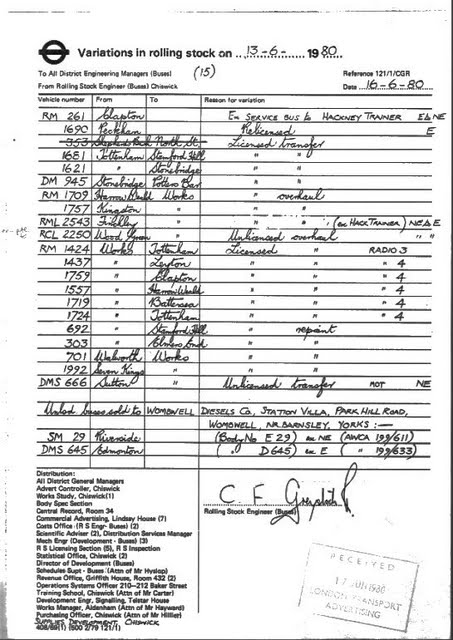 Variations in rolling stock on 13-6- 1980
(15)
To All District Engineering Managers (Buses)
Reference 121/1/CGR
From Rolling Stock Engineer (Buses) Chiswick
Date 16-6-80
Vehicle number From To Reason for variation
RM 261 Clapton Ex SERVICE BUS to HACKNEY TRAINER E to NE
1690 Peckham Relicensed E
353 Shepherds Bush North St. Licensed transfer
1681 Tottenham Stamford Hill " "
1621 " Stonebridge " "
DM 945 Stonebridge Potters Bar " "
RM 1709 Harrow Weald Works " overhaul
1757 Kingston " " "
RML 2543 Finchley " " " (ex HACK TRAINER) NE to E
RCL 2250 Wood Green " Unlicensed overhaul " "
RM 1424 Works Tottenham Licensed " RADIO 3
1437 " Leyton " " " 4
1759 " Clapton " " " 4
1557 " Harrow Weald " " " 4
1719 " Battersea " " " 4
1724 " Tottenham " " " 4
692 " Stamford Hill " repaint
303 " Elmers End " "
701 Walworth Works " "
1992 Seven Kings " " "
DMS 666 Sutton " Unlicensed transfer MOT NE
Unlcd buses sold to WOMBWELL DIESELS Co, STATION VILLA, PARK HILL ROAD,
WOMBWELL, NR. BARNSLEY, YORKS :—
SM 29 Riverside (Body No E 29) ex NE (AWCA 199/611)
DMS 645 Edmonton ( " D645) ex E ( " 199/633)
Distribution:
All District General Managers
Advert Controller, Chiswick
Works Study, Chiswick(1)
Body Spec Section
Central Record, Room 34
Commercial Advertising, Lindsey House (7)
Costs Office (R S Engr- Buses) (2)
Scientific Adviser (2), Distribution Services Manager
Mech Engr (Development - Buses) (3)
R S Licensing Section (5), R S Inspection
Statistical Office, Chiswick (2)
Director of Development (Buses)
Schedules Supt - Buses (Attn of Mr Hyslop)
Revenue Office, Griffith House, Room 432 (2)
Operations Systems Officer 210-212 Baker Street
Training School, Chiswick (Attn of Mr Carter)
Development Engr, Signalling, Telstar House
Works Manager, Aldenham (Attn of Mr Hayward)
Purchasing Officer, Chiswick (Attn of Mr Hillier)
SUPPLIES DEVELOPMENT, CHISWICK
408/69(1) (500 2/79 121/1)
C F
Rolling Stock Engineer (Buses)
RECEIVED
17 JUN 1980
LONDON TRANSPORT
ADVERTISING